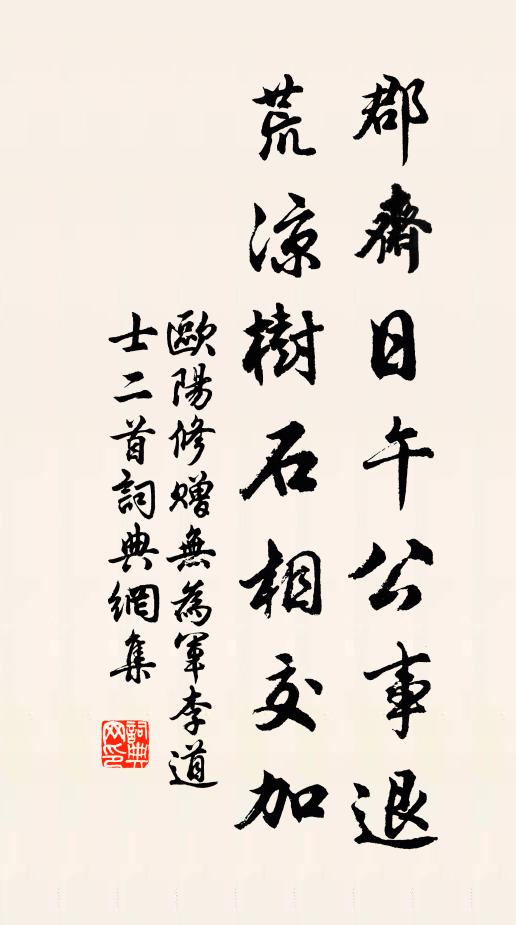 郡齋日午公事退
荒涼樹石相交加
歐陽修贈無為軍李道
士二首詞典網集
詞典网印